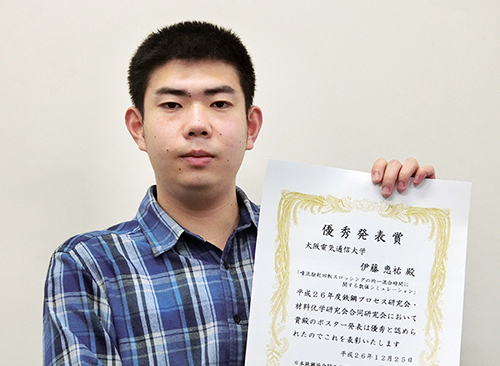 優秀発表賞
大阪電気通信大学
伊藤 恵祐 殿
に関する数値シミュレーション」
平成26年度鉄鋼プロセス研究会・
材料化学研究会合同研究会において
貴殿のポスター発表は優秀と認めら
れたのでこれを表彰いたします
平成26年12月25日